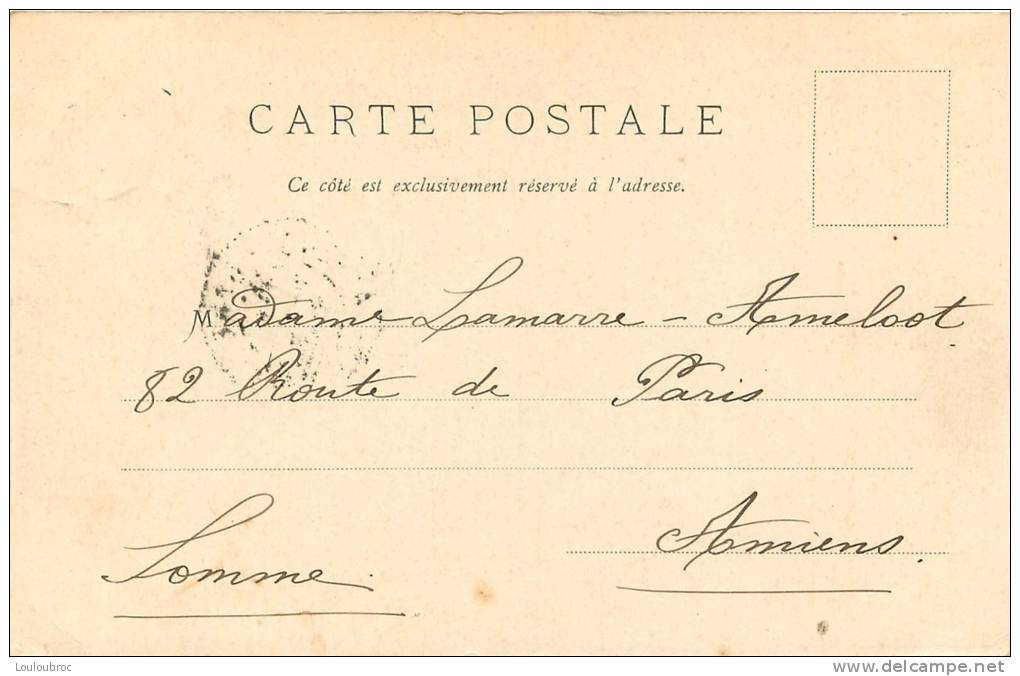 CARTE POSTALE
Ce côté est exclusivement réservé à l'adresse.
Madame Lamarre - Ameloot
82 Route de Paris
Amiens.
Somme.
Louloubroc
www.delcampe.net